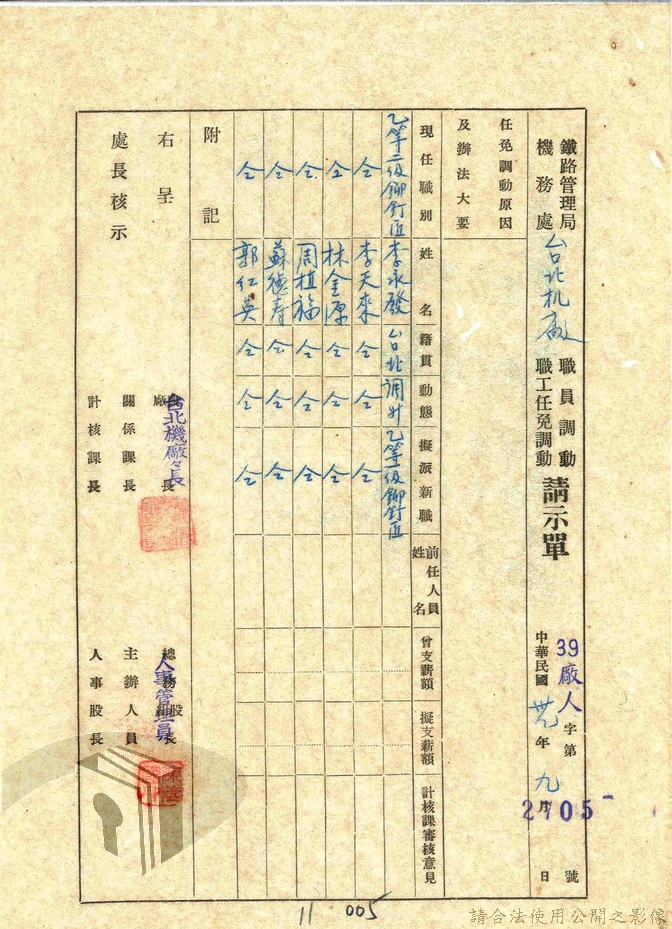 鐵路管理局
機務處
台北机廠
職員調動
職工任免調動
請示單
39廠人字第2705號
中華民國卅九年九月 日
任免調動原因
及辦法大要
現任職別 姓名 籍貫 動態 擬派新職 前任人員姓名 曾支薪額 擬支薪額 計核課審核意見
乙等二級鉚釘匠 李永發 台北 調升 乙等一級鉚釘匠
仝 李天來 仝 仝 仝
仝 林金源 仝 仝 仝
仝 周植福 仝 仝 仝
仝 蘇德壽 仝 仝 仝
仝 郭仁英 仝 仝 仝
附記
右呈
處長核示
台北機廠廠長
關係課長
計核課長
人事管理員
主辦人員
人事股長
11 005
請合法使用公開之影像